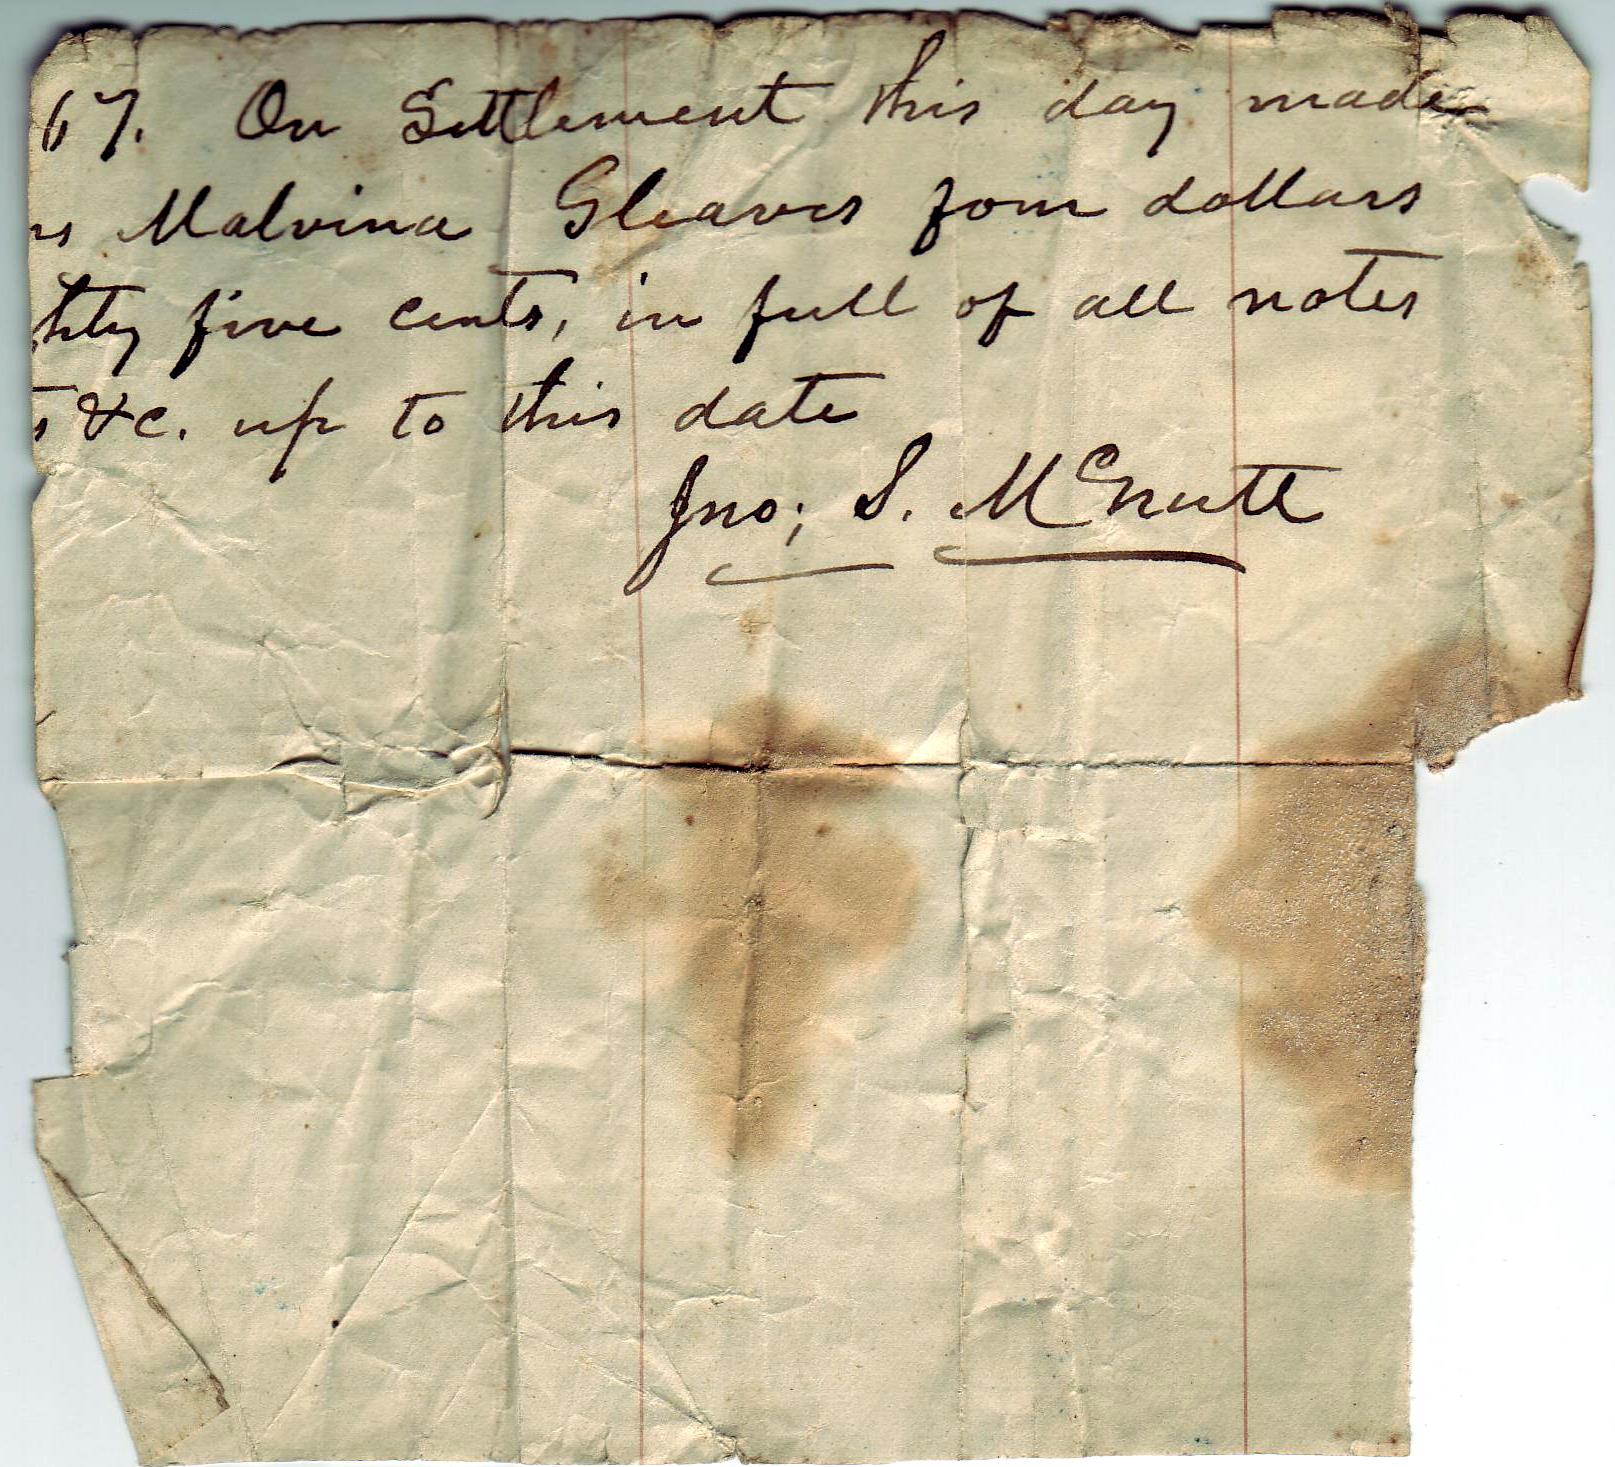 67. On Settlement this day made
rs Malvina Gleaves four dollars
hty five cents, in full of all notes
s &c. up to this date
Jno; S. McNutt